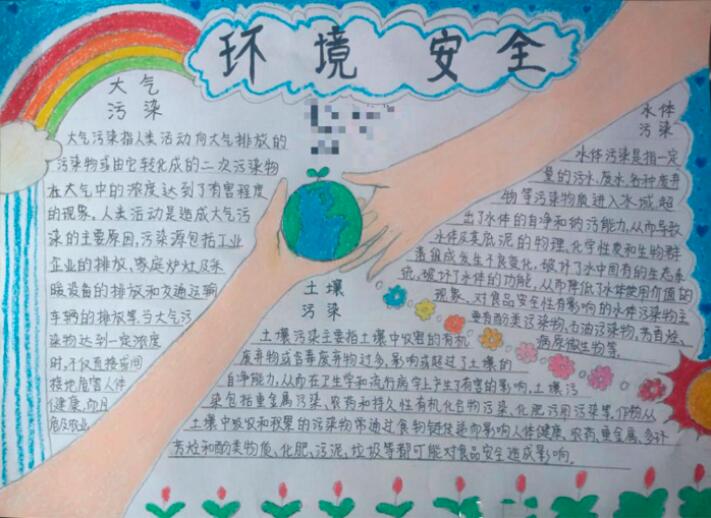 环境安全
大气
污染
大气污染指人类活动向大气排放的
污染物或由它转化成的二次污染物
在大气中的浓度达到了有害程度
的现象。人类活动是造成大气污
染的主要原因,污染源包括工业
企业的排放、家庭炉灶及采
暖设备的排放和交通运输
车辆的排放等。当大气污
染物达到一定浓度
时,不仅直接或间
接地危害人体
健康,而且
危及农业
水体
污染
水体污染是指一定
量的污水、废水、各种废弃
物等污染物质进入水域,超
出了水体的自净和纳污能力,从而导致
水体及其底泥的物理、化学性质和生物群
落组成发生不良变化,破坏了水中固有的生态系
统,破坏了水体的功能,从而降低了水体使用价值的
现象。对食品安全性有影响的水体污染物主
要有酚类污染物、石油污染物、苯有烃、
病原微生物等。
土壤
污染
土壤污染主要指土壤中收容的有机
废弃物或含毒废弃物过多,影响或超过了土壤的
自净能力,从而在卫生学和流行病学上产生了有害的影响。土壤污
染包括重金属污染、农药和持久性有机化合物污染、化肥污用污染等。作物从
土壤中吸收和积累的污染物常通过食物链传染而影响人体健康。农药、重金属、多环
芳烃和酚类物质、化肥、污泥、垃圾等都可能对食品安全造成影响。